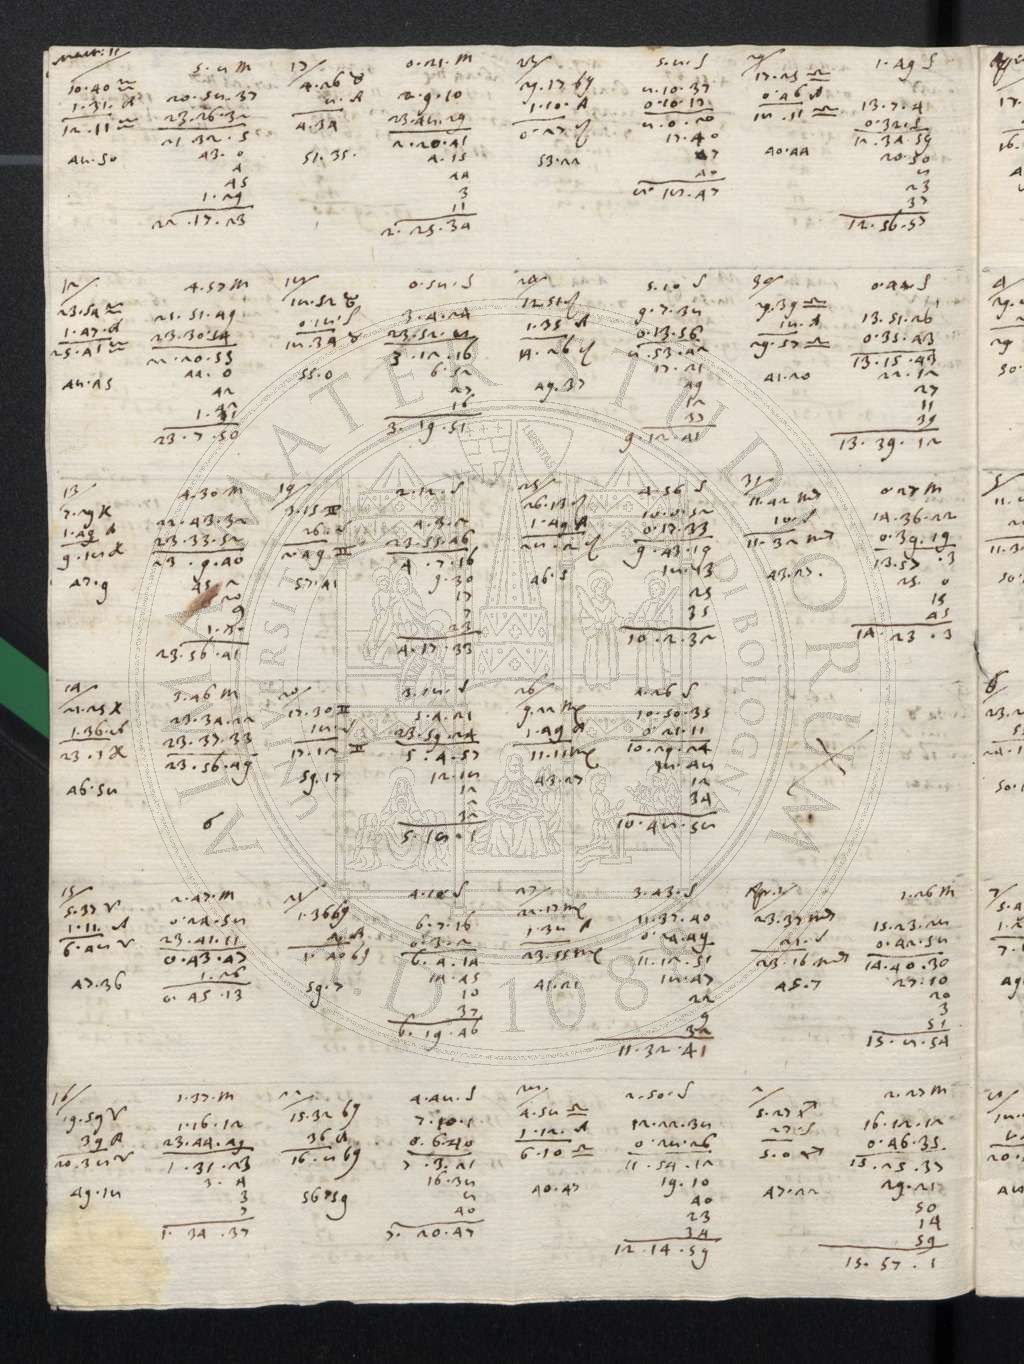 Mart. 11 5.8 M
10.40 ♒ 20.58.37
1.31. A 23.26.32
12.11 ♒ 21.32.5
48.50 43.0
4
45
1.29
22.17.23
12 4.57 M
23.54 ♒ 21.51.49
1.47 A 23.30.54
25.41 ♒ 22.20.55
48.25 44.0
42
42
1.31
23.7.50
13 4.30 M
7.29 ♓ 22.43.32
1.49 A 23.33.52
9.18 ♓ 23.9.40
47.9 45.2
20
9
1.30
23.56.41
14 3.46 M
21.25 ♓ 23.34.22
1.36 A 23.37.33
23.1 ♓ 23.56.49
46.58
6
15 2.47 M
5.37 ♈ 0.24.58
1.11 A 23.41.11
6.48 ♈ 0.43.47
47.36 1.26
0.45.13
16 1.37 M
19.59 ♈ 1.16.12
39 A 23.44.49
20.38 ♈ 1.31.23
49.18 3.4
3
7
1.34.37
17 0.21 M
4.26 ♉ 2.9.10
8 A 23.48.29
4.34 2.20.41
51.35 4.15
24
3
11
2.25.34
18 0.58 S
18.52 ♉ 3.4.24
0.18 S 23.52.8
18.34 ♉ 3.12.16
55.0 6.52
27
16
3.19.51
19 2.12 S
3.15 ♊ 4.3.2
26 S 23.55.46
2.49 ♊ 4.7.16
57.41 9.30
17
7
23
4.17.33
20 3.18 S
17.30 ♊ 5.4.21
18 S 23.59.24
17.12 ♊ 5.4.57
59.17 12.18
12
2
32
5.18.1
21 4.10 S
1.36 ♋ 6.7.16
4 A 0.3.2
1.40 ♋ 6.4.14
59.7 14.45
10
37
6.19.46
22 4.48 S
15.32 ♋ 7.10.1
36 A 0.6.40
16.8 ♋ 7.3.21
56.59 16.38
8
40
7.20.47
23 5.8 S
29.17 ♋ 8.10.37
1.10 A 0.10.17
0.27 ♌ 8.0.20
53.22 17.40
7
40
8.18.47
24 5.10 S
12.51 ♌ 9.7.38
1.35 A 0.13.56
14.26 ♌ 8.53.42
49.37 17.21
49
12
37
9.12.41
25 4.56 S
26.13 ♌ 10.0.52
1.49 A 0.17.33
28.2 ♌ 9.43.19
46.5 18.13
25
35
10.2.32
26 4.26 S
9.22 ♍ 10.50.35
1.49 A 0.21.11
11.11 ♍ 10.29.24
43.27 18.48
12
34
10.48.58
27 3.43 S
22.17 ♍ 11.37.40
1.38 A 0.24.49
23.55 ♍ 11.12.51
41.21 18.47
22
9
32
11.32.41
28 2.50 S
4.58 ♎ 12.22.38
1.12 A 0.28.26
6.10 ♎ 11.54.12
40.47 19.10
40
23
34
12.14.59
29 1.49 S
17.25 ♎ 13.7.4
0.46 A 0.32.5
18.11 ♎ 12.34.59
40.44 20.50
8
23
37
12.56.57
30 0.44 S
29.39 ♎ 13.51.26
18 A 0.35.43
29.57 ♎ 13.15.43
41.20 22.12
27
11
39
13.39.12
31 0.27 M
11.42 ♏ 14.36.22
10 S 0.39.19
11.32 ♏ 13.57.3
43.27 25.0
15
45
14.23.3
Apr. 1 1.26 M
23.37 ♏ 15.23.28
21 S 0.42.58
23.16 ♏ 14.40.30
45.7 27.10
20
3
51
15.8.54
2 2.27 M
5.27 ♐ 16.12.12
27 S 0.46.35
5.0 ♐ 15.25.37
47.22 29.21
50
14
59
15.57.1
ALMA MATER STUDIORUM
UNIVERSITÀ DI BOLOGNA
A.D. 1088